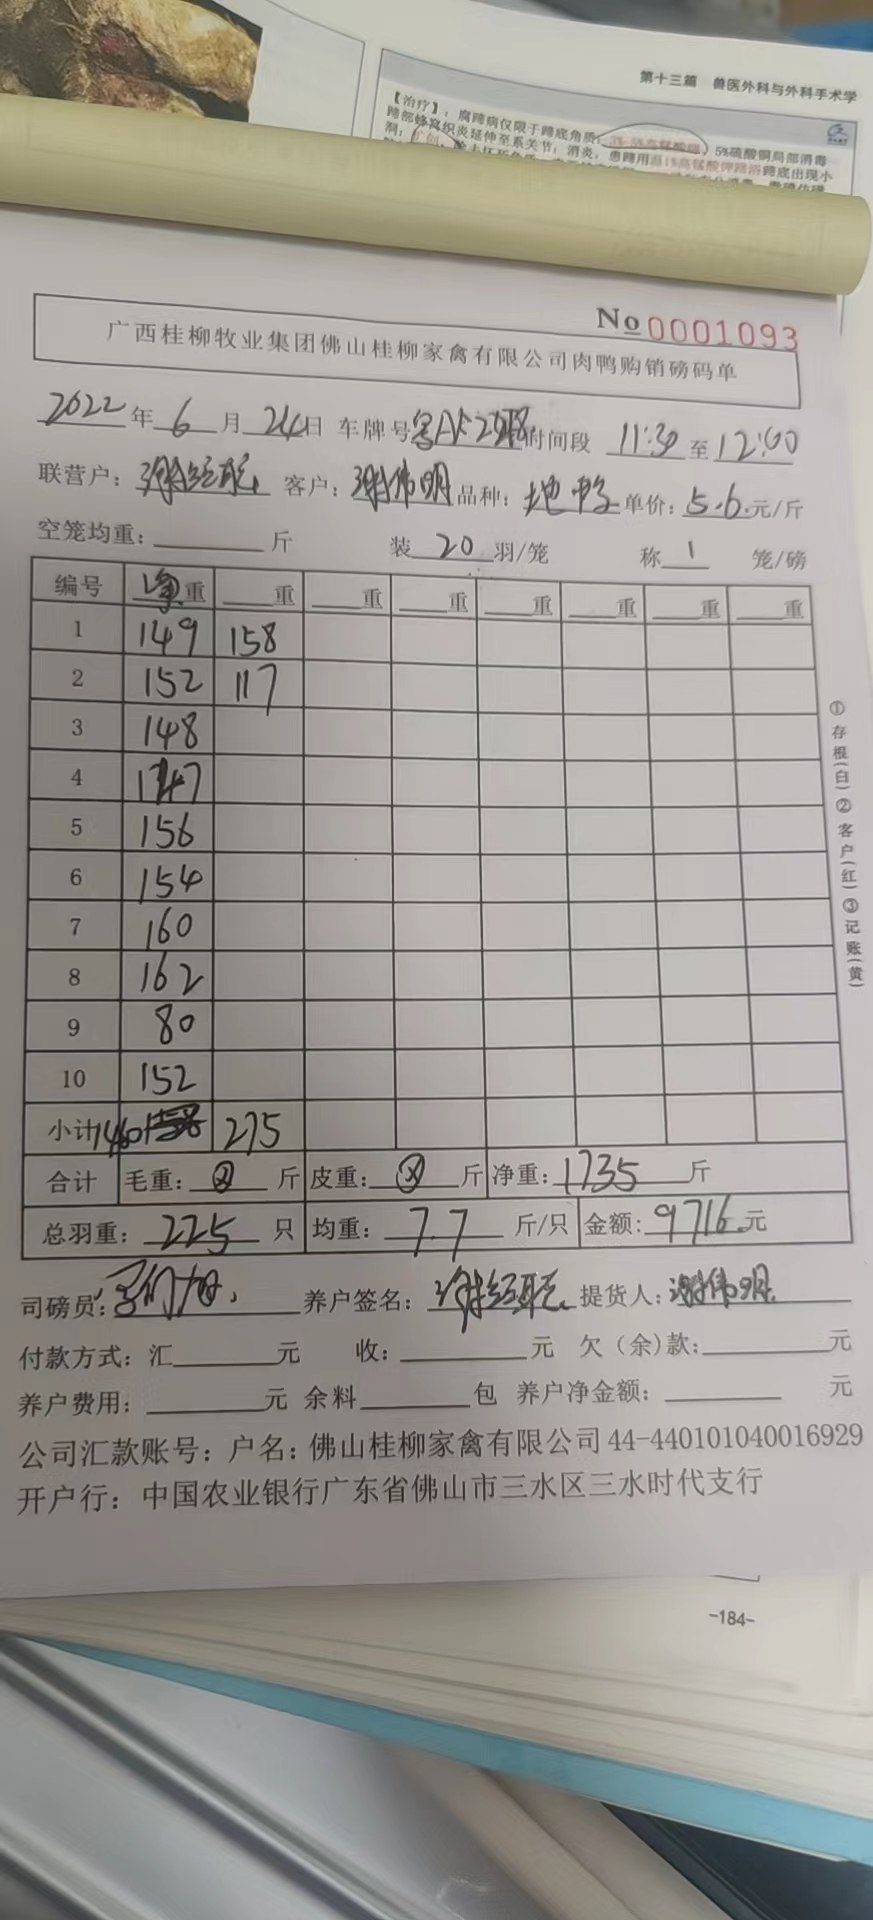 第十三篇 兽医外科与外科手术学
【治疗】：腐蹄病仅限于蹄底角质：3%-5%高锰酸钾、5%硫酸铜局部消毒
蹄部蜂窝织炎延伸至系关节：消炎，患蹄用温1%高锰酸钾蹄浴蹄底出现小
洞：扩创
No 0001093
广西桂柳牧业集团佛山桂柳家禽有限公司肉鸭购销磅码单
2022年6月24日 车牌号 时间段 11:30至12:00
联营户： 客户：谢伟明 品种： 单价：5.6元/斤
空笼均重： 斤 装20羽/笼 称1 笼/磅
编号 净重 重 重 重 重 重 重 重
1 149 158
2 152 117
3 148
4 147
5 156
6 154
7 160
8 162
9 80
10 152
小计 1460 275
合计 毛重： 斤 皮重： 斤 净重：1735 斤
总羽重：225 只 均重：7.7 斤/只 金额：9716元
司磅员： 养户签名： 提货人：谢伟明
付款方式：汇 元 收： 元 欠（余）款： 元
养户费用： 元 余料 包 养户净金额： 元
公司汇款账号：户名：佛山桂柳家禽有限公司44-440101040016929
开户行：中国农业银行广东省佛山市三水区三水时代支行
①存根(白)②客户(红)③记账(黄)
-184-